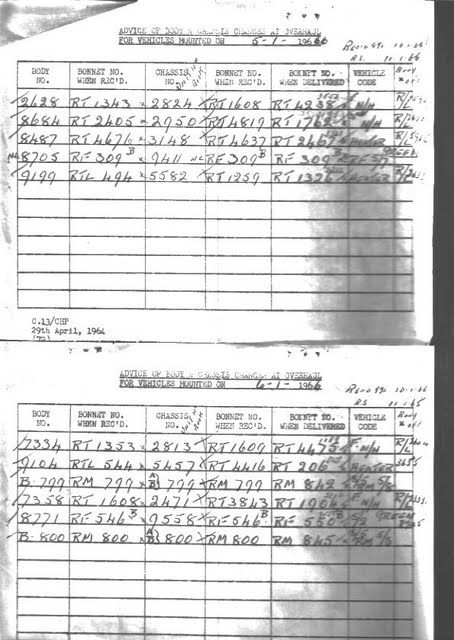 ADVICE OF BODY & CHASSIS CHANGES AT OVERHAUL
FOR VEHICLES MOUNTED ON 5-1-1966
10-1-66
BODY NO. BONNET NO. WHEN REC'D. CHASSIS NO. BONNET NO. WHEN REC'D. BONNET NO. WHEN DELIVERED VEHICLE CODE Body
2628 RT 1343 2824 RT 1608 RT 4238 N/H R/L
8684 RT 2405 2950 RT 4819 RT 1762 N/H R/L
8487 RT 4676 3148 RT 4637 RT 2467 HEATER R/L
NL 8705 RF 309 B 9411 NL RF 309 B RF 309 GREEN
9199 RTL 494 5582 RT 1259 RT 1326 HEATER R/L
C.13/CHP
29th April, 1964
(72)
ADVICE OF BODY & CHASSIS CHANGES AT OVERHAUL
FOR VEHICLES MOUNTED ON 6-1-1966
10-1-65
BODY NO. BONNET NO. WHEN REC'D. CHASSIS NO. BONNET NO. WHEN REC'D. BONNET NO. WHEN DELIVERED VEHICLE CODE Body
7334 RT 1353 2813 RT 1609 RT 4675 F N/H R/L
9104 RTL 544 5457 RT 4416 RT 206 HEATER
B 799 RM 799 B 799 RM 799 RM 842
7358 RT 1608 2471 RT 3843 RT 1904 N/H R/L
8771 RF 546 B 9558 RF 546 B RF 550 GREEN
B 800 RM 800 B 800 RM 800 RM 845 RM 5/3